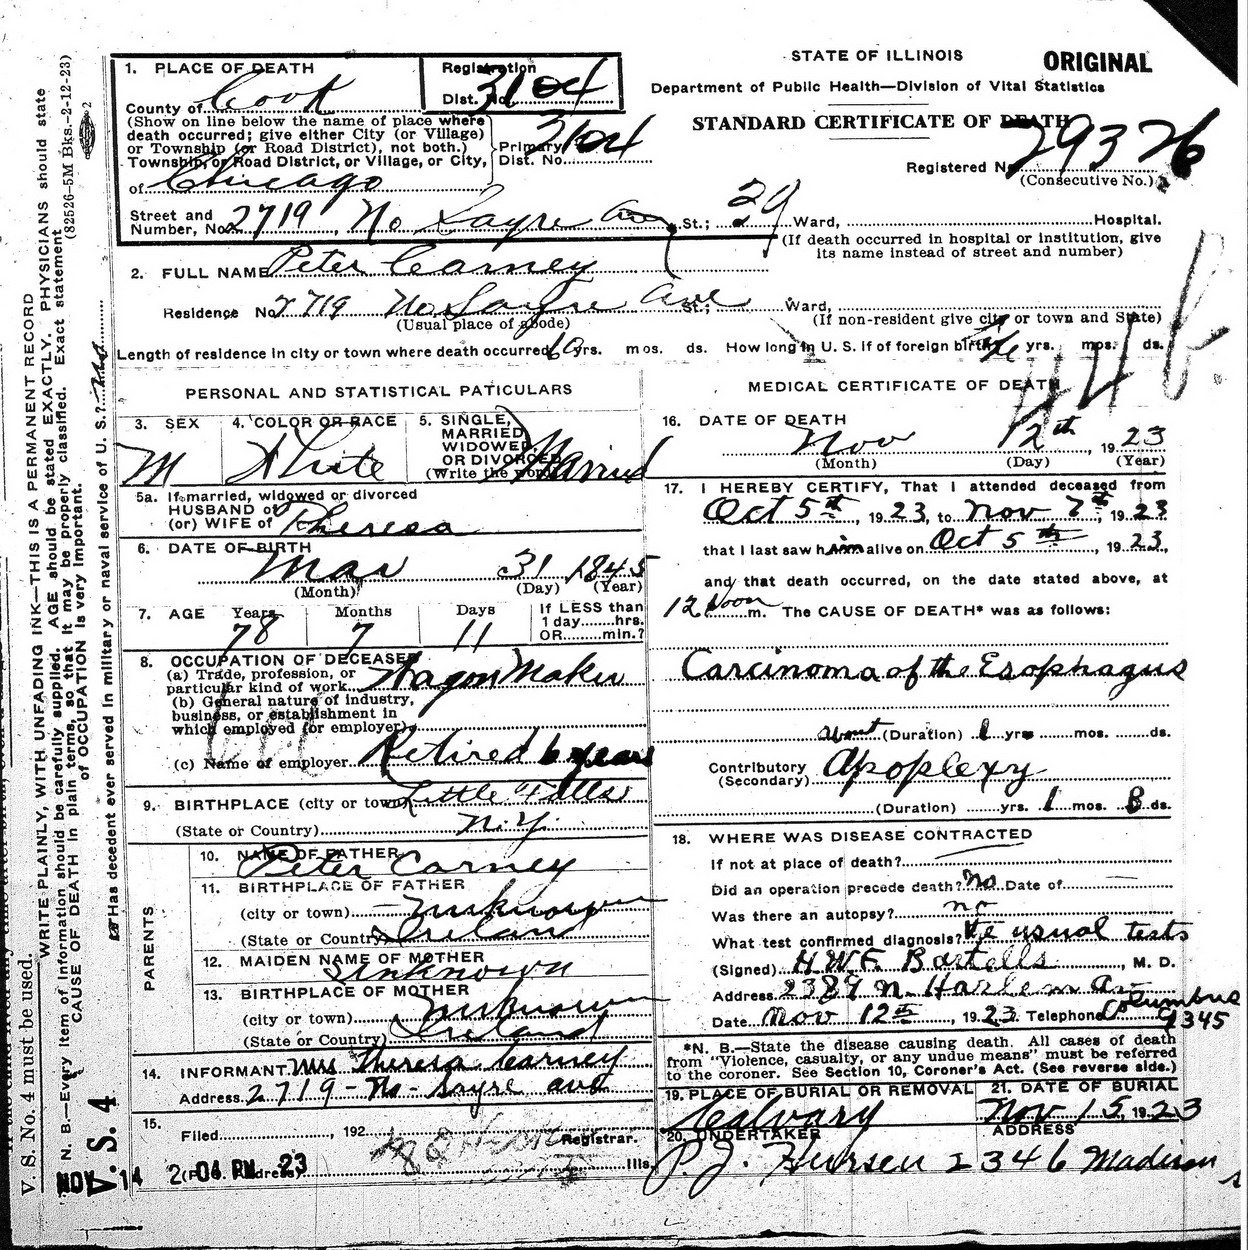 STATE OF ILLINOIS
ORIGINAL
Department of Public Health—Division of Vital Statistics
STANDARD CERTIFICATE OF DEATH
Registered No. 29376
(Consecutive No.)
1. PLACE OF DEATH
Registration
Dist. No. 3104
County of Cook
(Show on line below the name of place where
death occurred; give either City (or Village)
or Township (or Road District), not both.)
Township, or Road District, or Village, or City,
Primary
Dist. No. 3104
of Chicago
Street and
Number, No. 2719 No Sayre Ave St.; 29 Ward, Hospital.
(If death occurred in hospital or institution, give
its name instead of street and number)
2. FULL NAME Peter Carney
Residence No. 2719 No Sayre Ave St.; Ward,
(Usual place of abode)
(If non-resident give city or town and State)
Length of residence in city or town where death occurred yrs. mos. ds. How long in U. S. if of foreign birth? yrs. mos. ds.
PERSONAL AND STATISTICAL PATICULARS
3. SEX
M
4. COLOR OR RACE
White
5. SINGLE,
MARRIED
WIDOWED
OR DIVORCED
(Write the word)
Married
5a. If married, widowed or divorced
HUSBAND of
(or) WIFE of Theresa
6. DATE OF BIRTH
Mar 31 1845
(Month) (Day) (Year)
7. AGE Years Months Days
78 7 11
If LESS than
1 day......hrs.
OR......min.?
8. OCCUPATION OF DECEASED
(a) Trade, profession, or
particular kind of work Wagon Maker
(b) General nature of industry,
business, or establishment in
which employed (or employer)
(c) Name of employer Retired 6 years
9. BIRTHPLACE (city or town) Little Falls
(State or Country) N.Y.
PARENTS
10. NAME OF FATHER
Peter Carney
11. BIRTHPLACE OF FATHER
(city or town) Unknown
(State or Country) Ireland
12. MAIDEN NAME OF MOTHER
Unknown
13. BIRTHPLACE OF MOTHER
(city or town) Unknown
(State or Country) Ireland
14. INFORMANT Mrs Theresa Carney
Address 2719 - No - Sayre ave
15.
Filed, 192 Registrar.
(P. O. Address) Ills
NOV 14 2 04 PM 23
MEDICAL CERTIFICATE OF DEATH
16. DATE OF DEATH
Nov 12th, 1923
(Month) (Day) (Year)
17. I HEREBY CERTIFY, That I attended deceased from
Oct 5th, 1923, to Nov 7th, 1923
that I last saw him alive on Oct 5th, 1923,
and that death occurred, on the date stated above, at
12 Noon m. The CAUSE OF DEATH* was as follows:
Carcinoma of the Esophagus
about (Duration) 1 yrs mos. ds.
Contributory
(Secondary)
Apoplexy
(Duration) yrs. 1 mos. 8 ds.
18. WHERE WAS DISEASE CONTRACTED
If not at place of death?
Did an operation precede death? No Date of
Was there an autopsy? no
What test confirmed diagnosis? The usual tests
(Signed) H W F. Bartells, M. D.
Address 2389 N. Harlem Av
Date Nov 12th, 1923 Telephone Columbus 1345
*N. B.—State the disease causing death. All cases of death
from "Violence, casualty, or any undue means" must be referred
to the coroner. See Section 10, Coroner's Act. (See reverse side.)
19. PLACE OF BURIAL OR REMOVAL
Calvary
21. DATE OF BURIAL
Nov 15, 1923
20. UNDERTAKER
P. J. Hursen
ADDRESS
2346 Madison
V. S. No. 4 must be used.
N. B.—Every item of information should be carefully supplied. AGE should be stated EXACTLY. PHYSICIANS should state
CAUSE OF DEATH in plain terms, so that it may be properly classified. Exact statement
of OCCUPATION is very important.
WRITE PLAINLY, WITH UNFADING INK—THIS IS A PERMANENT RECORD
(82526-5M Bks.-2-12-23)
Has decedent ever served in military or naval service of U. S.? No
V. S. 4